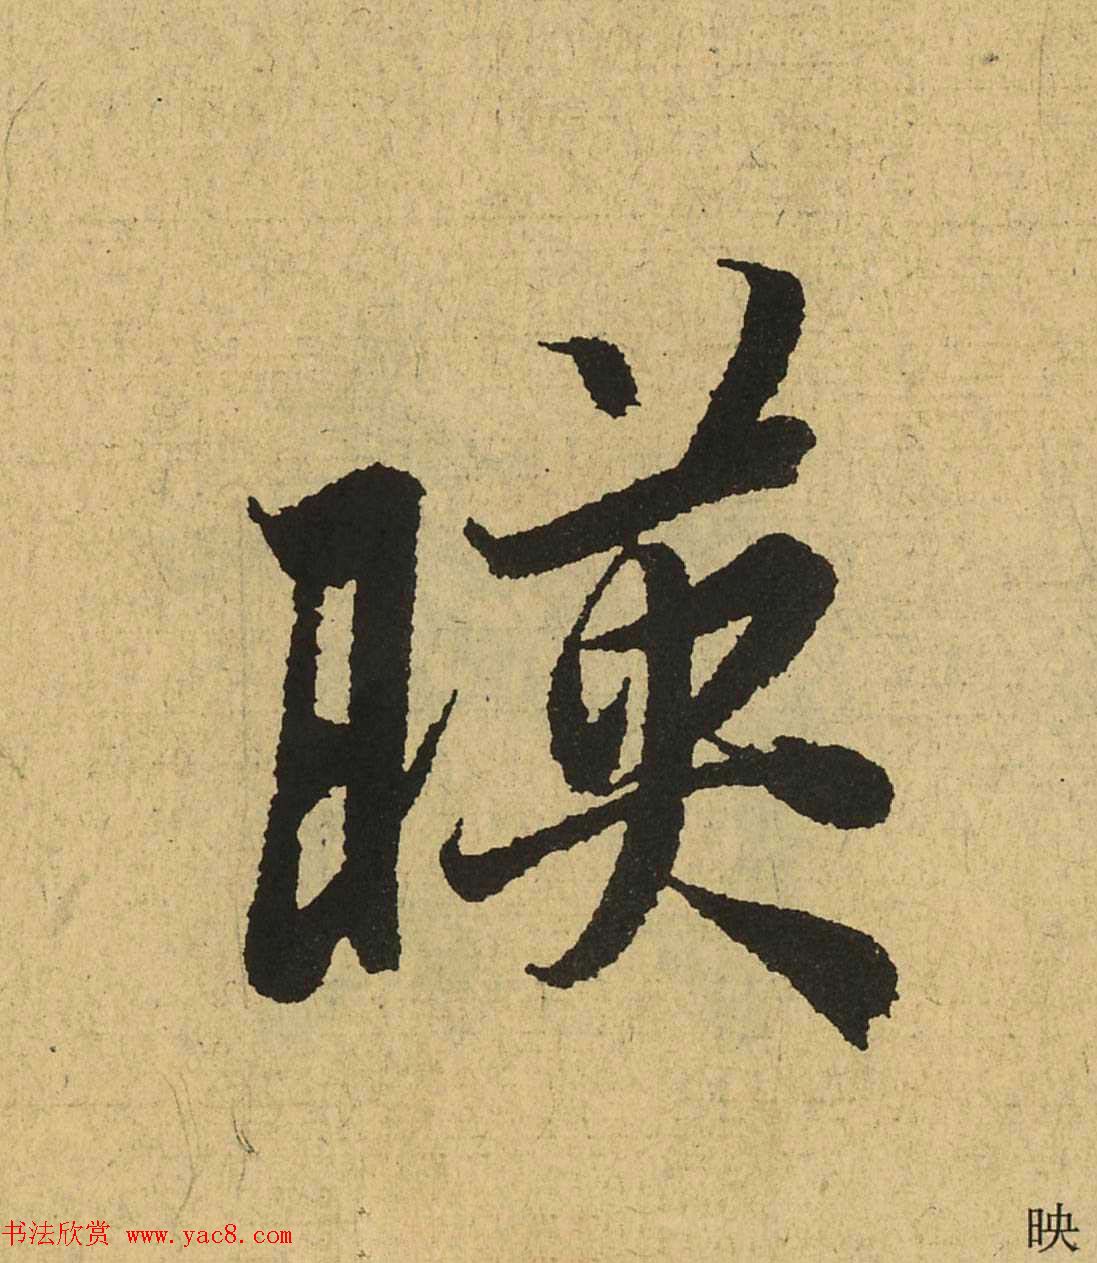 暎
书法欣赏 www.yac8.com
映